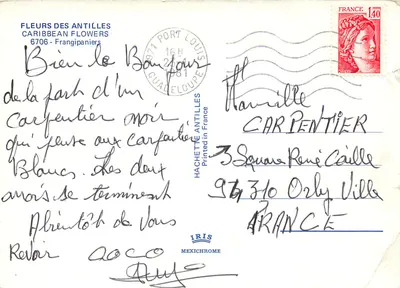 FLEURS DES ANTILLES
CARIBBEAN FLOWERS
6706 - Frangipaniers
Bien le Bonjour
de la part d'un
carpentier noir
qui pense aux carpentier
Blancs. Les deux
mois se terminent
A bientôt de vous
Revoir COCO
971 PORT LOUIS
16 H
1981
GUADELOUPE
FRANCE
1,40
HACHETTE ANTILLES
Printed in France
Famille
CARPENTIER
3 Square René Caille
94310 Orly Ville
FRANCE
IRIS
MEXICHROME